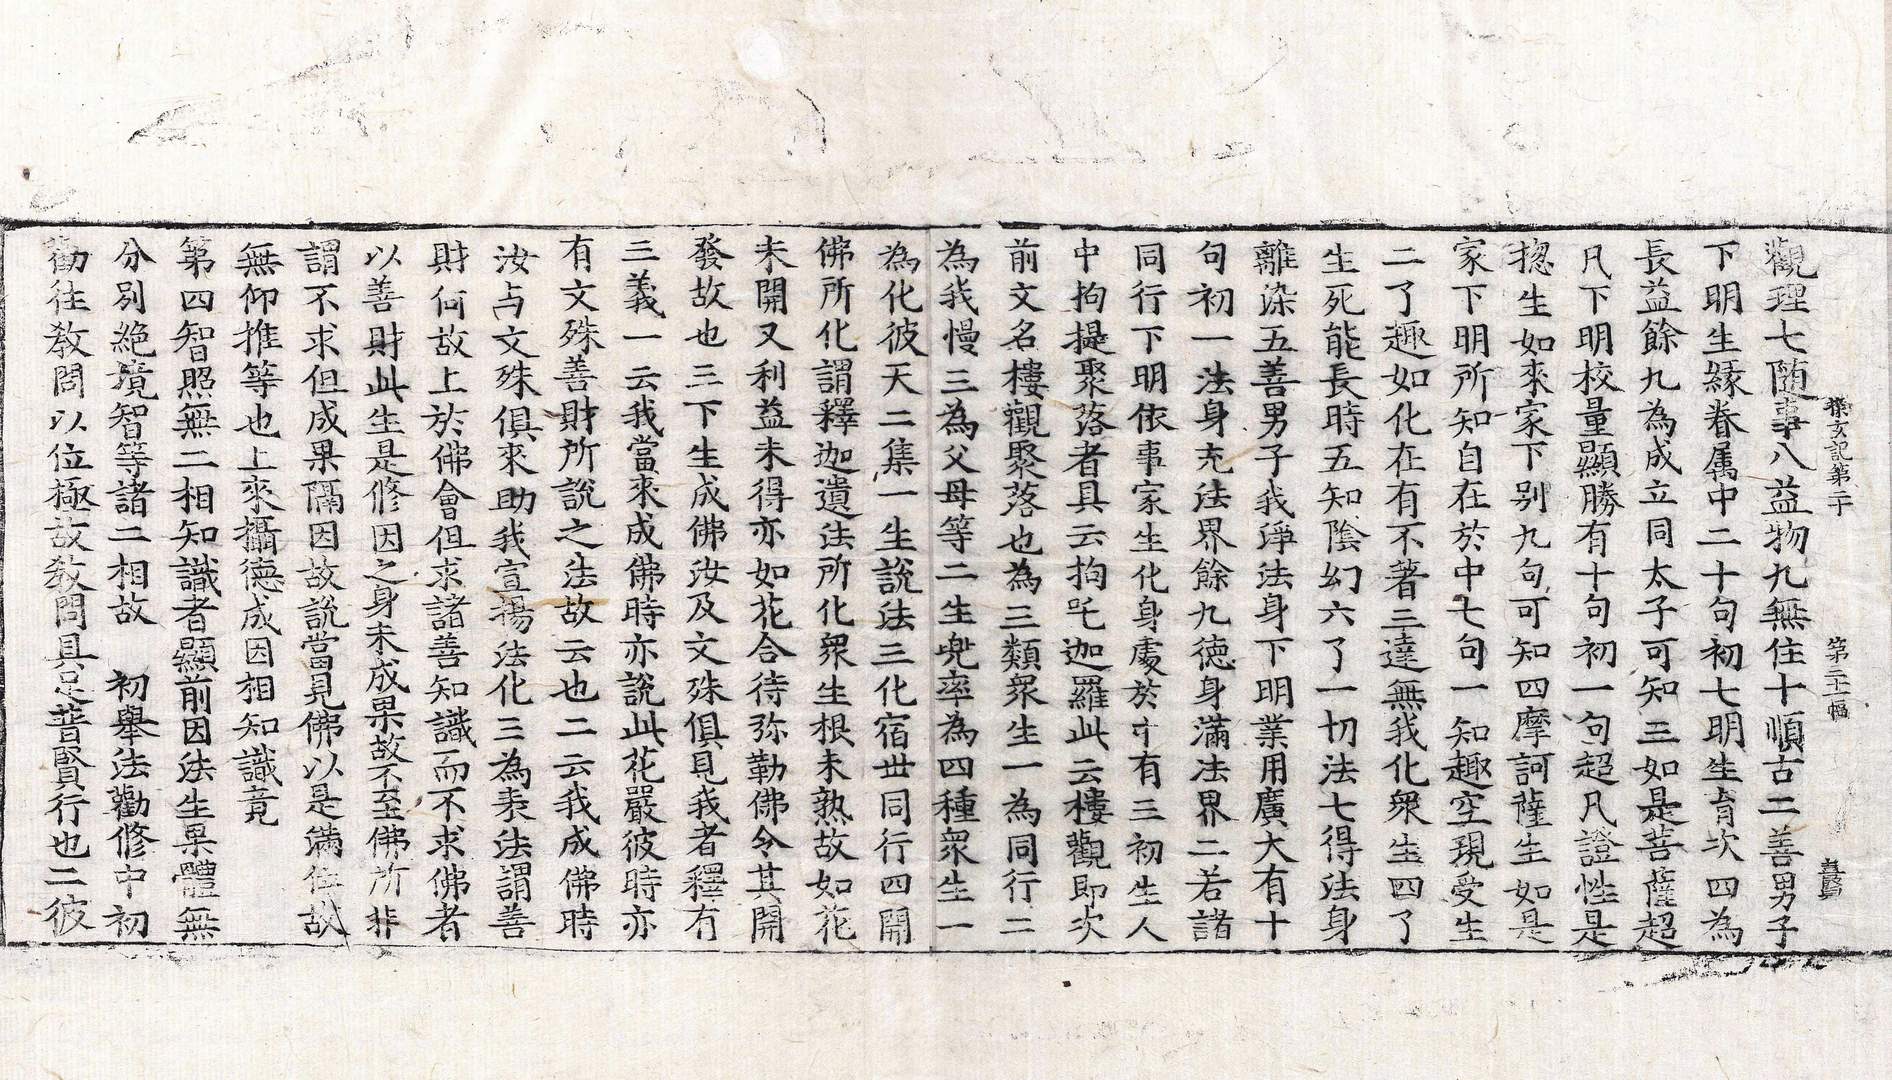 探玄記第二十　第三十一幅
觀理七随事八益物九無住十順古二善男子
下明生縁眷属中二十句初七明生育次四為
長益餘九為成立同太子可知三如是菩薩超
凡下明校量顯勝有十句初一句超凡證性是
揔生如來家下别九句可知四摩訶薩生如是
家下明所知自在於中七句一知趣空現受生
二了趣如化在有不著三達無我化衆生四了
生死能長時五知陰幻六了一切法七得法身
離染五善男子我淨法身下明業用廣大有十
句初一法身充法界餘九徳身滿法界二若諸
同行下明依事家生化身處於中有三初生人
中拘提聚落者具云拘吒迦羅此云樓觀即次
前文名樓觀聚落也為三類衆生一為同行二
為我慢三為父母等二生兜率為四種衆生一
為化彼天二集一生說法三化宿世同行四開
佛所化謂釋迦遺法所化衆生根未熟故如花
未開又利益未得亦如花合待弥勒佛令其開
發故也三下生成佛汝及文殊俱見我者釋有
三義一云我當來成佛時亦說此花嚴彼時亦
有文殊善財所說之法故云也二云我成佛時
汝占文殊俱來助我宣揚法化三為表法謂善
財何故上於佛會但求諸善知識而不求佛者
以善財此生是修因之身未成果故不至佛所非
謂不求但成果隔因故說當見佛以是滿位故
無仰推等也上來攝德成因相知識竟
第四智照無二相知識者顯前因法生果體無
分别絶境智等諸二相故　初舉法勸修中初
勸往教問以位極故教問具足普賢行也二彼